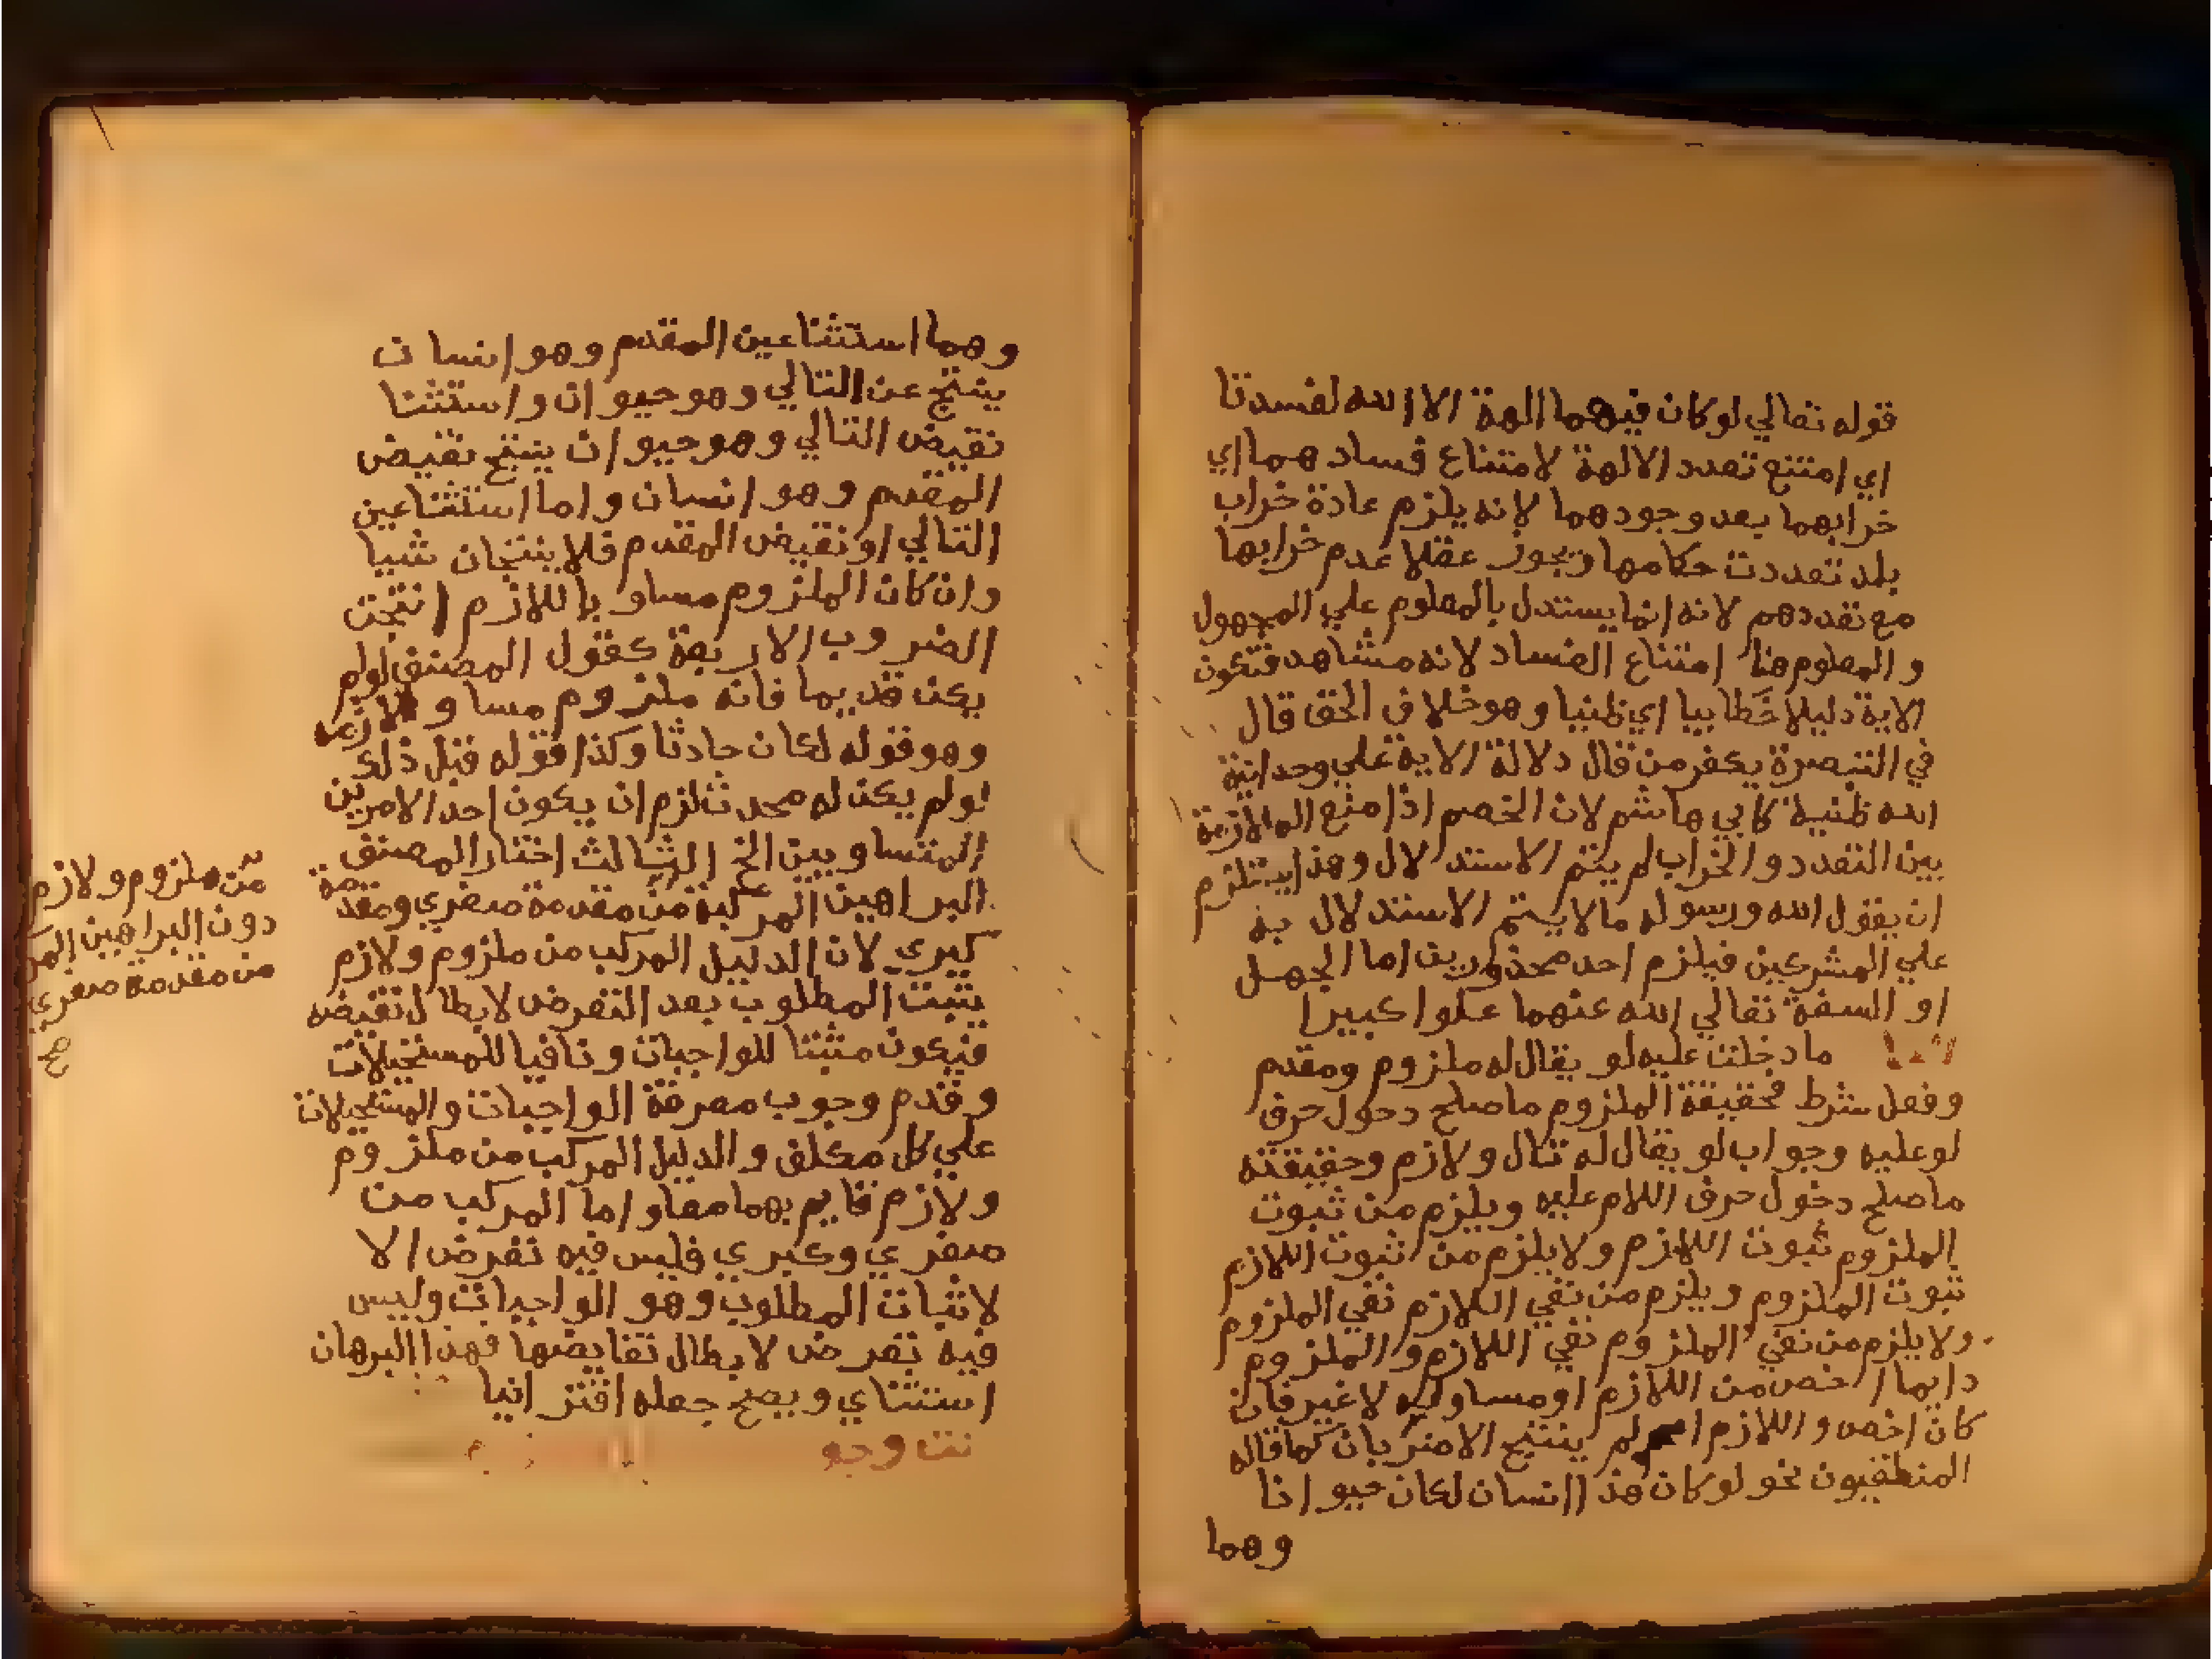 قوله تعالي لوكان فيهما الهة الا الله لفسدتا
اي امتنع تعدد الالهة لامتناع فسادهما اي
خرابهما بعد وجودهما لانه يلزم عادة خراب
بلد تعددت حكامها ويجوز عقلا عدم خرابها
مع تعددهم لانه انما يستدل بالمعلوم علي المجهول
والمعلوم هنا امتناع الفساد لانه مشاهد فتكون
الاية دليلا خطابيا اي ظنيا وهو خلاف الحق قال
في التبصرة يكفر من قال دلالة الاية علي وحدانية
الله ظنية كابي هاشم لان الخصم اذا منع الملازمة
بين التعدد والخراب لم يتم الاستدلال وهذا يستلزم
ان يقول الله ورسوله مالا يستم الاستدلال به
علي المشركين فيلزم احد محذورين اما الجهل
او السفة تعالي الله عنهما علوا كبيرا
ما دخلت عليه لو يقال له ملزوم ومقدم
وفعل شرط فحقيقة الملزوم ما صلح دخول حرف
لو عليه وجواب لو يقال له تال ولازم وحقيقته
ما صلح دخول حرف اللام عليه ويلزم من ثبوت
الملزوم ثبوت اللازم ولا يلزم من ثبوت اللازم
ثبوت الملزوم ويلزم من نفي اللازم نفي الملزوم
ولا يلزم من نفي الملزوم نفي اللازم والملزوم
دايما اخص من اللازم او مساو ليه لا غير فان
كان اخص واللازم اعم لم ينتج الا ضربان كما قاله
المنطقيون نحو لو كان هذا انسان لكان حيوانا
وهما
وهما استثنا عين المقدم وهو انسان
ينتج عن التالي وهو حيوان واستثنا
نقيض التالي وهو حيوان ينتج نقيض
المقدم وهو انسان واما استثنا عين
التالي او نقيض المقدم فلا ينتجان شيا
وان كان الملزوم مساو باللازم انتجت
الضروب الاربعة كقول المصنف لو لم
يكن قديما فانه ملزوم مساو للازمه
وهو قوله لكان حادثا وكذا قوله قبل ذلك
لو لم يكن له محدث لزم ان يكون احد الامرين
المتساويين الخ الثالث اختار المصنف
البراهين المركبة من مقدمة صغري ومقدمة
كبري لان الدليل المركب من ملزوم ولازم
يثبت المطلوب بعد التعرض لابطال نقيضه
فيكون مثبتا للواجبات ونافيا للمستحيلات
وقدم وجوب معرفة الواجبات والمستحيلات
علي كل مكلف والدليل المركب من ملزوم
ولازم قايم بهما معا واما المركب من
صغري وكبري فليس فيه تعرض الا
لاثبات المطلوب وهو الواجبات وليس
فيه تعرض لابطال نقايضها فهذا البرهان
استثناي ويصح جعله اقترانيا
من ملزوم ولازم
دون البراهين المر
من مقدمة صغري